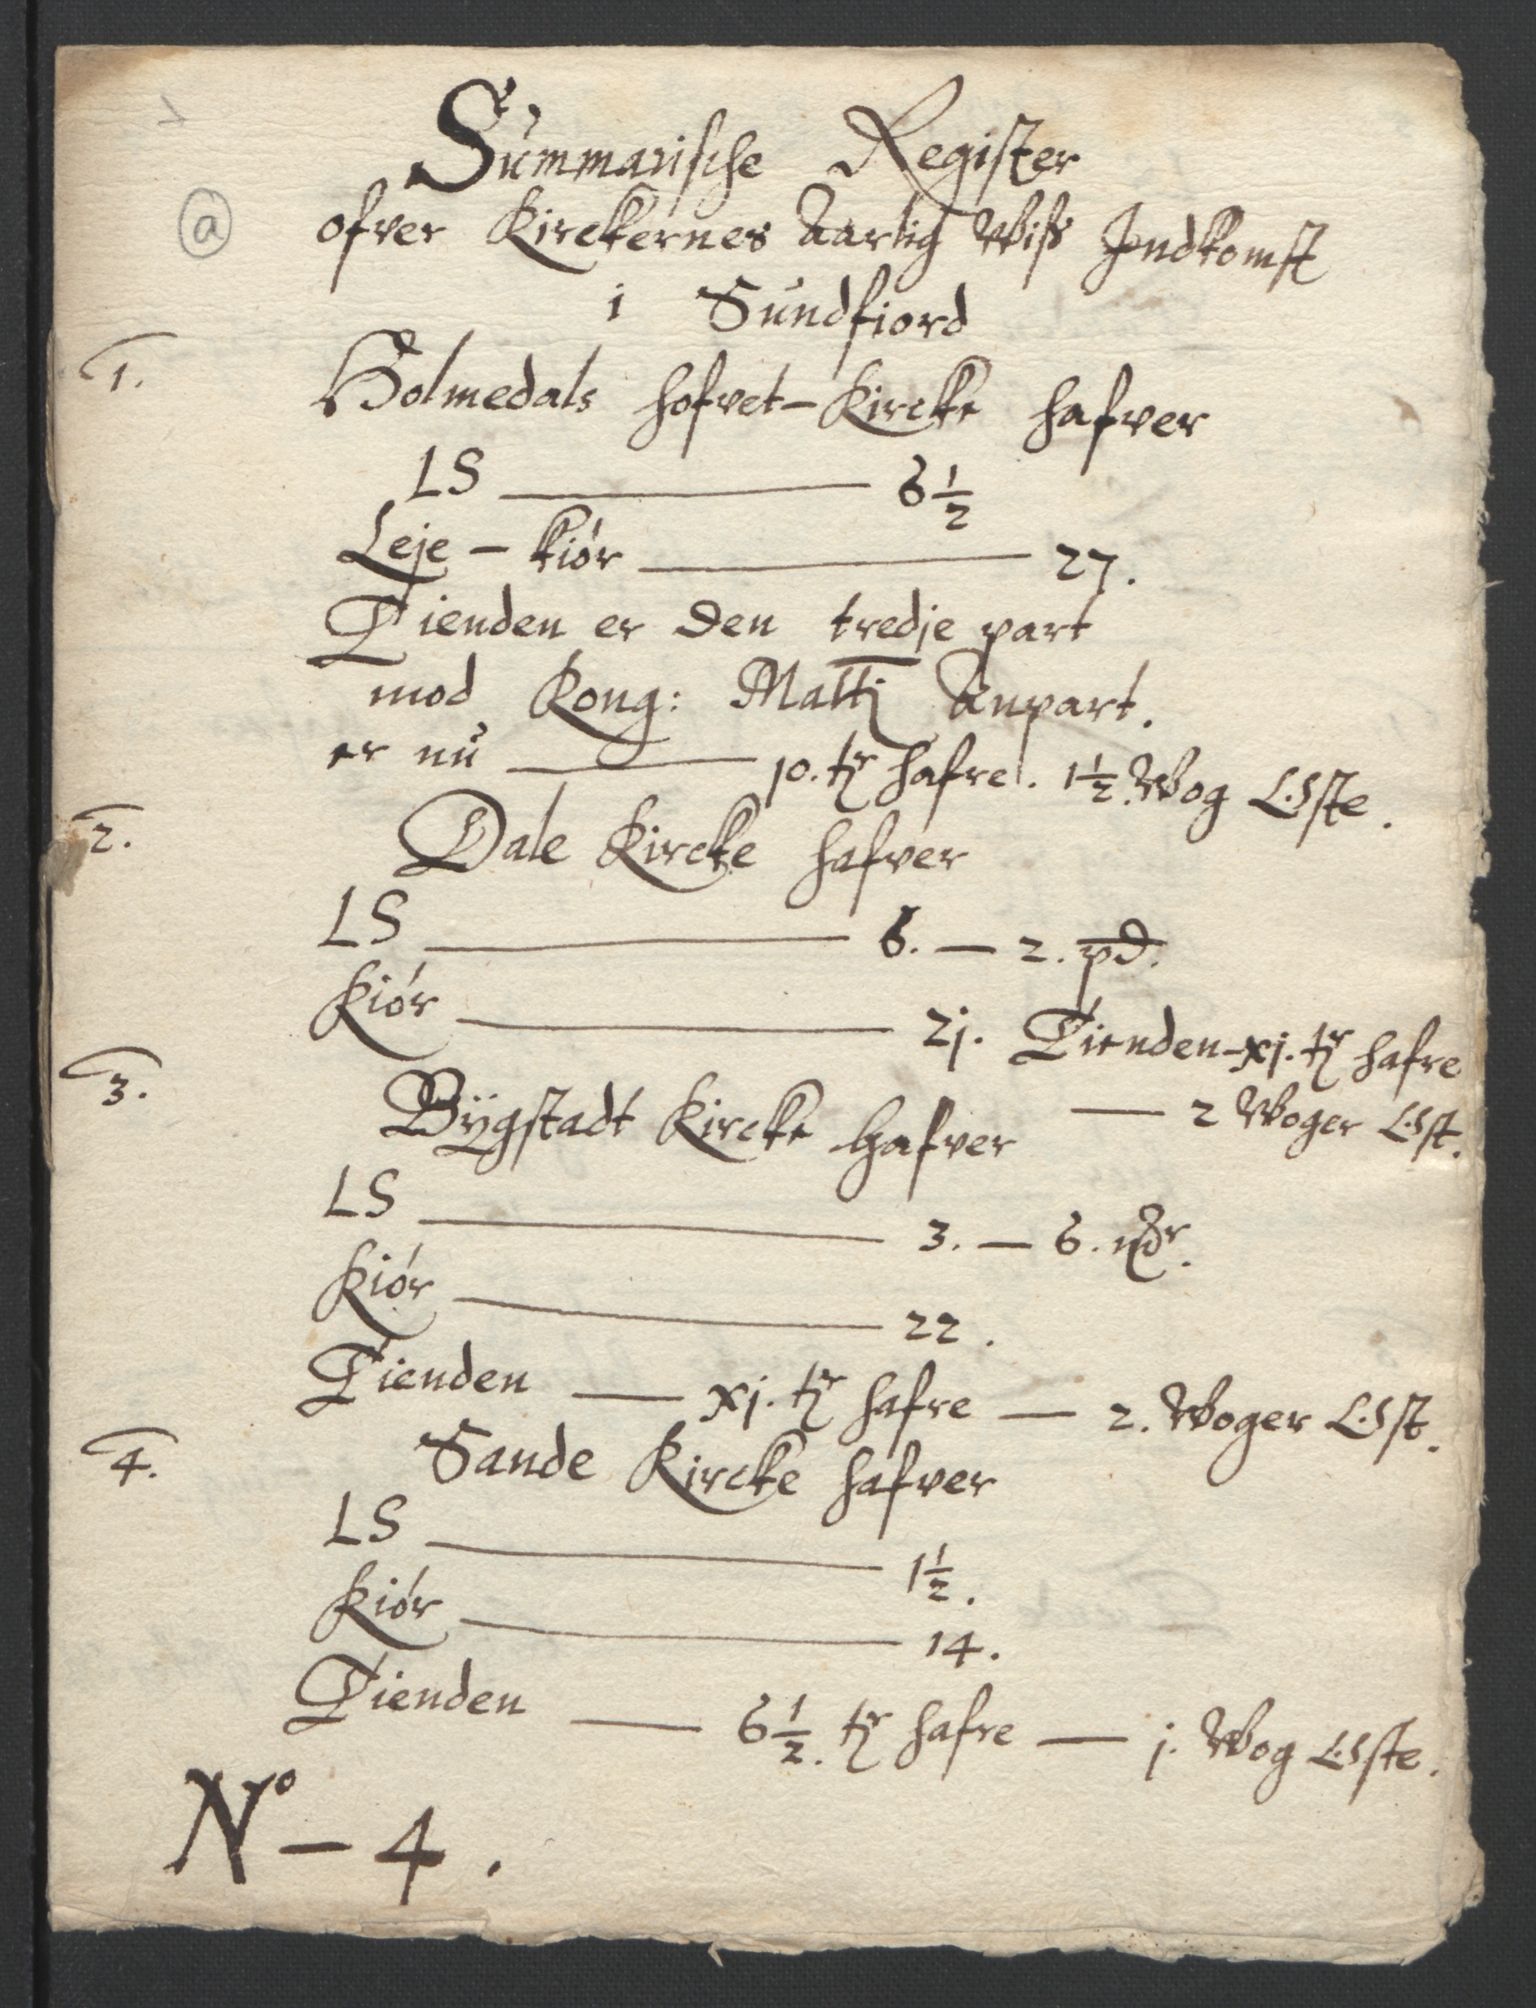 a
Summarische Register
ofver Kirckernes Aarlig Wiss Indkomst
i Sundfiord
1. Holmedals hofvet-Kircke hafver
LS — 6 1/2
Leje-kiör — 27.
Tienden er den tredje part
mod Kong: Mattz Anpart.
er nu — 10. tr hafre. 1 1/2 Wog Oste.
2. Dale Kircke hafver
LS — 6. — 2. pd.
Kiör — 2j. Tienden - xj. tr hafre
— 2 Woger Ost.
3. Bÿgstadt Kircke hafver
LS — 3. — 6.
Kiör — 22.
Tienden — xj. tr hafre — 2. Woger Ost.
4. Sande Kircke hafver
LS — 1 1/2.
Kiör — 14.
Tienden — 6 1/2. tr hafre — j. Wog Oste.
No — 4.